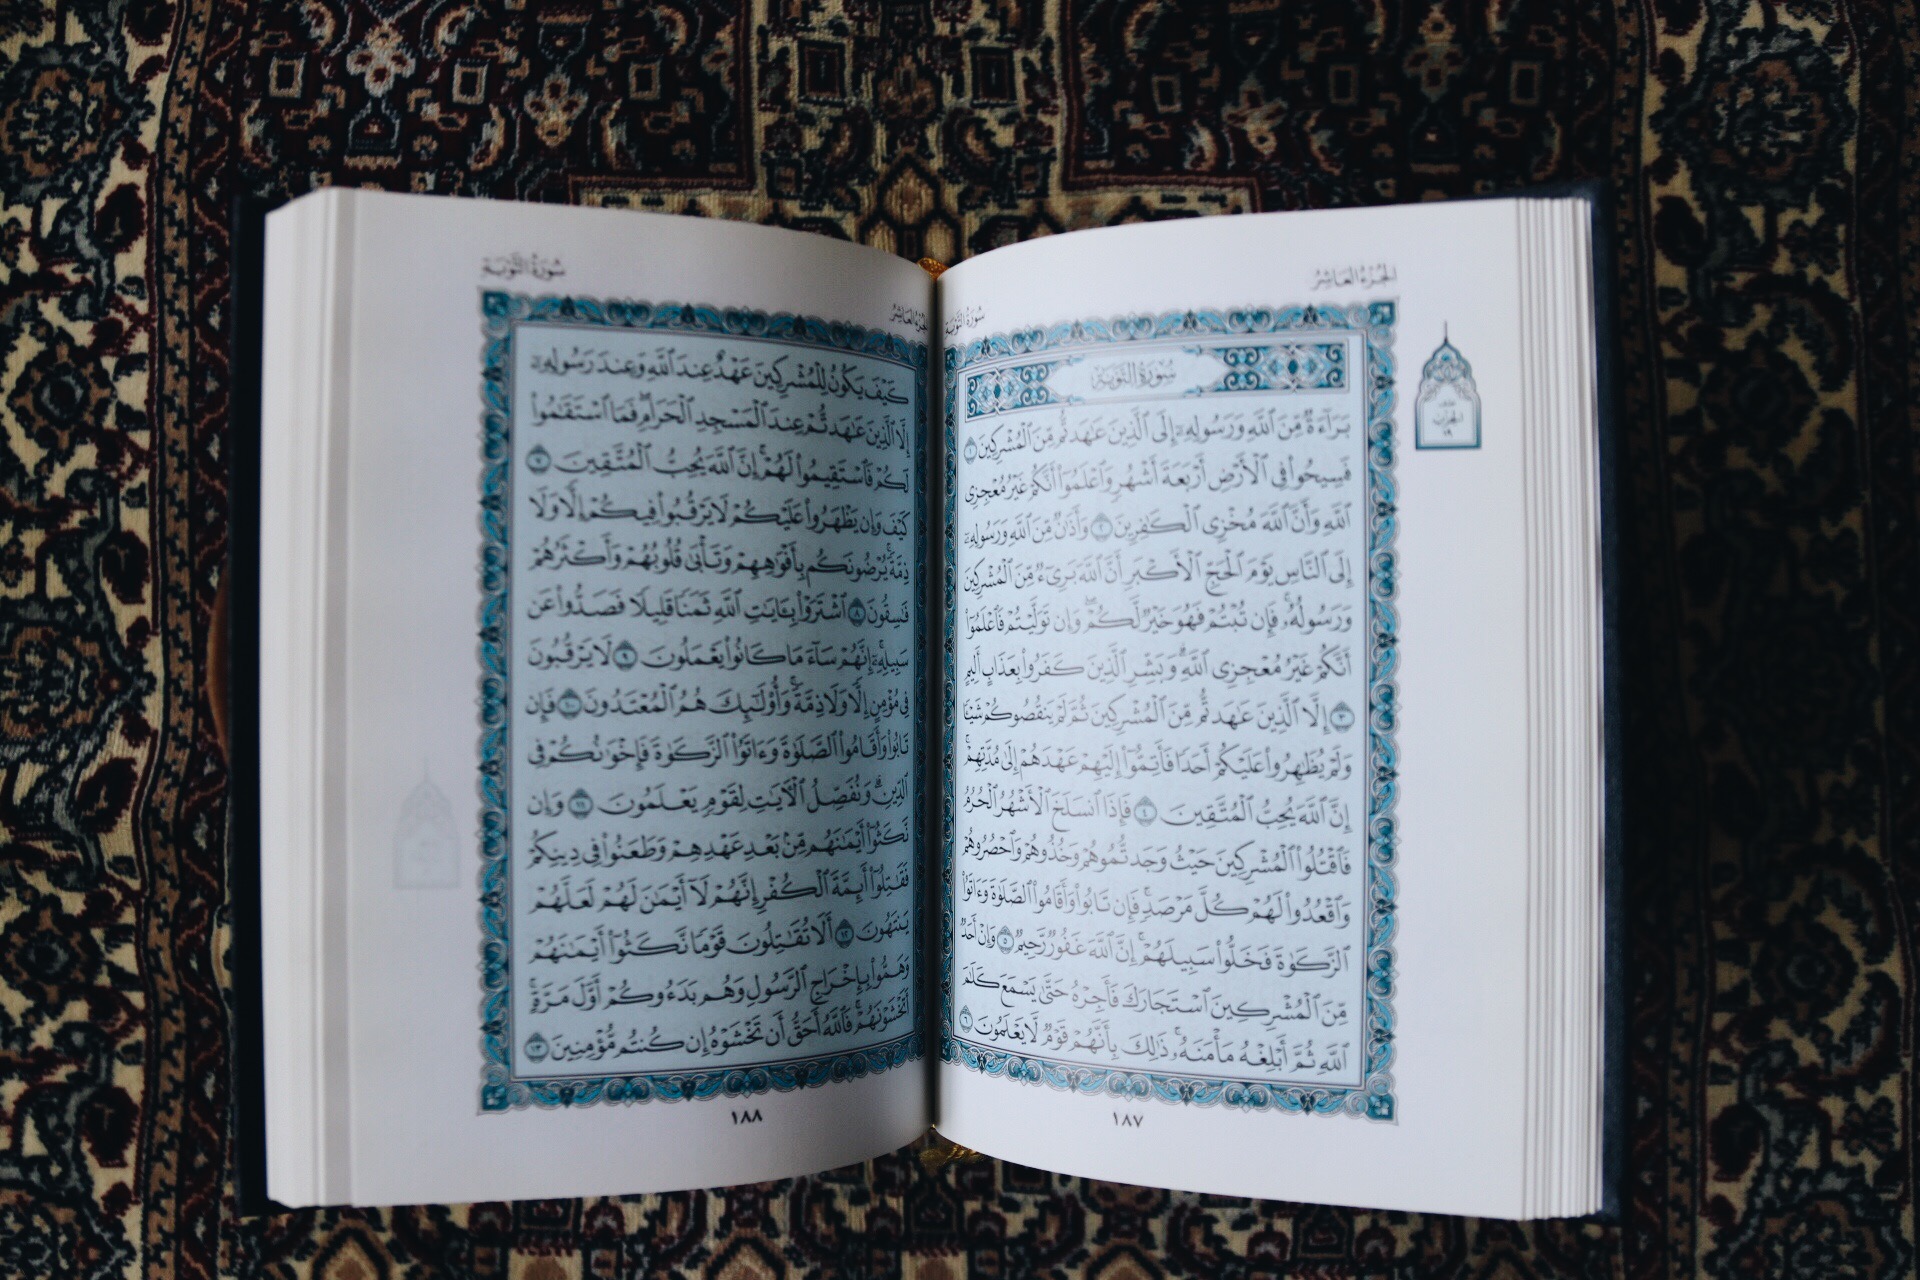 الجزء العاشر
سورة التوبة
سُورَةُ التَّوْبَةِ
بَرَآءَةٌ مِّنَ ٱللَّهِ وَرَسُولِهِۦٓ إِلَى ٱلَّذِينَ عَٰهَدتُّم مِّنَ ٱلْمُشْرِكِينَ ١
فَسِيحُوا۟ فِى ٱلْأَرْضِ أَرْبَعَةَ أَشْهُرٍ وَٱعْلَمُوٓا۟ أَنَّكُمْ غَيْرُ مُعْجِزِى
ٱللَّهِ وَأَنَّ ٱللَّهَ مُخْزِى ٱلْكَٰفِرِينَ ٢ وَأَذَٰنٌ مِّنَ ٱللَّهِ وَرَسُولِهِۦٓ
إِلَى ٱلنَّاسِ يَوْمَ ٱلْحَجِّ ٱلْأَكْبَرِ أَنَّ ٱللَّهَ بَرِىٓءٌ مِّنَ ٱلْمُشْرِكِينَ
وَرَسُولُهُۥ ۚ فَإِن تُبْتُمْ فَهُوَ خَيْرٌ لَّكُمْ ۖ وَإِن تَوَلَّيْتُمْ فَٱعْلَمُوٓا۟
أَنَّكُمْ غَيْرُ مُعْجِزِى ٱللَّهِ ۗ وَبَشِّرِ ٱلَّذِينَ كَفَرُوا۟ بِعَذَابٍ أَلِيمٍ
٣ إِلَّا ٱلَّذِينَ عَٰهَدتُّم مِّنَ ٱلْمُشْرِكِينَ ثُمَّ لَمْ يَنقُصُوكُمْ شَيْـًٔا
وَلَمْ يُظَٰهِرُوا۟ عَلَيْكُمْ أَحَدًا فَأَتِمُّوٓا۟ إِلَيْهِمْ عَهْدَهُمْ إِلَىٰ مُدَّتِهِمْ ۚ
إِنَّ ٱللَّهَ يُحِبُّ ٱلْمُتَّقِينَ ٤ فَإِذَا ٱنسَلَخَ ٱلْأَشْهُرُ ٱلْحُرُمُ
فَٱقْتُلُوا۟ ٱلْمُشْرِكِينَ حَيْثُ وَجَدتُّمُوهُمْ وَخُذُوهُمْ وَٱحْصُرُوهُمْ
وَٱقْعُدُوا۟ لَهُمْ كُلَّ مَرْصَدٍ ۚ فَإِن تَابُوا۟ وَأَقَامُوا۟ ٱلصَّلَوٰةَ وَءَاتَوُا۟
ٱلزَّكَوٰةَ فَخَلُّوا۟ سَبِيلَهُمْ ۚ إِنَّ ٱللَّهَ غَفُورٌ رَّحِيمٌ ٥ وَإِنْ أَحَدٌ
مِّنَ ٱلْمُشْرِكِينَ ٱسْتَجَارَكَ فَأَجِرْهُ حَتَّىٰ يَسْمَعَ كَلَٰمَ
ٱللَّهِ ثُمَّ أَبْلِغْهُ مَأْمَنَهُۥ ۚ ذَٰلِكَ بِأَنَّهُمْ قَوْمٌ لَّا يَعْلَمُونَ ٦
الحزب
١٩
١٨٧
الجزء العاشر
سورة التوبة
كَيْفَ يَكُونُ لِلْمُشْرِكِينَ عَهْدٌ عِندَ ٱللَّهِ وَعِندَ رَسُولِهِۦٓ
إِلَّا ٱلَّذِينَ عَٰهَدتُّمْ عِندَ ٱلْمَسْجِدِ ٱلْحَرَامِ ۖ فَمَا ٱسْتَقَٰمُوا۟
لَكُمْ فَٱسْتَقِيمُوا۟ لَهُمْ ۚ إِنَّ ٱللَّهَ يُحِبُّ ٱلْمُتَّقِينَ ٧
كَيْفَ وَإِن يَظْهَرُوا۟ عَلَيْكُمْ لَا يَرْقُبُوا۟ فِيكُمْ إِلًّا وَلَا
ذِمَّةً ۚ يُرْضُونَكُم بِأَفْوَٰهِهِمْ وَتَأْبَىٰ قُلُوبُهُمْ وَأَكْثَرُهُمْ
فَٰسِقُونَ ٨ ٱشْتَرَوْا۟ بِـَٔايَٰتِ ٱللَّهِ ثَمَنًا قَلِيلًا فَصَدُّوا۟ عَن
سَبِيلِهِۦٓ ۚ إِنَّهُمْ سَآءَ مَا كَانُوا۟ يَعْمَلُونَ ٩ لَا يَرْقُبُونَ
فِى مُؤْمِنٍ إِلًّا وَلَا ذِمَّةً ۚ وَأُو۟لَٰٓئِكَ هُمُ ٱلْمُعْتَدُونَ ١٠ فَإِن
تَابُوا۟ وَأَقَامُوا۟ ٱلصَّلَوٰةَ وَءَاتَوُا۟ ٱلزَّكَوٰةَ فَإِخْوَٰنُكُمْ فِى
ٱلدِّينِ ۗ وَنُفَصِّلُ ٱلْـَٔايَٰتِ لِقَوْمٍ يَعْلَمُونَ ١١ وَإِن
نَّكَثُوٓا۟ أَيْمَٰنَهُم مِّنۢ بَعْدِ عَهْدِهِمْ وَطَعَنُوا۟ فِى دِينِكُمْ
فَقَٰتِلُوٓا۟ أَئِمَّةَ ٱلْكُفْرِ ۙ إِنَّهُمْ لَآ أَيْمَٰنَ لَهُمْ لَعَلَّهُمْ
يَنتَهُونَ ١٢ أَلَا تُقَٰتِلُونَ قَوْمًا نَّكَثُوٓا۟ أَيْمَٰنَهُمْ
وَهَمُّوا۟ بِإِخْرَاجِ ٱلرَّسُولِ وَهُم بَدَءُوكُمْ أَوَّلَ مَرَّةٍ ۚ
أَتَخْشَوْنَهُمْ ۚ فَٱللَّهُ أَحَقُّ أَن تَخْشَوْهُ إِن كُنتُم مُّؤْمِنِينَ ١٣
١٨٨